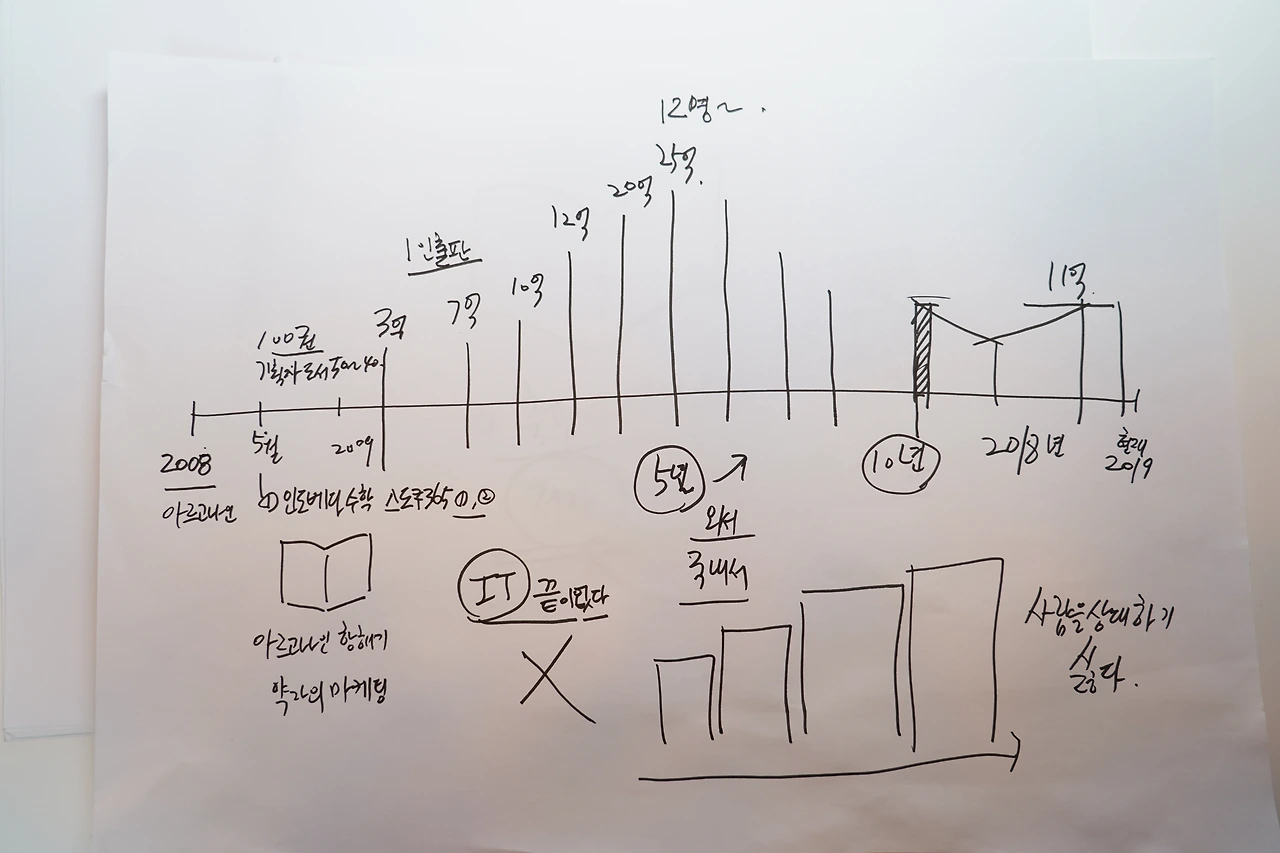 12명~.
25억.
20억
12억
1인출판
10억
7억
3억
100권
기획자 도서 50~40.
11억.
2008
5월
2009
5년
10년
2018년
현재
2019
아르고나인
인도베다수학 스도쿠365 ①,②
외서
국내서
IT 끝이없다
아르고나인 항해기
약자의 마케팅
사람을상대하기
싫다.